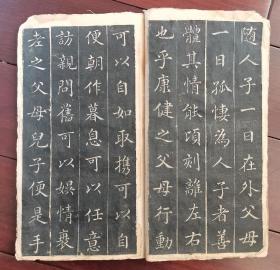 隨人子一日在外父母
一日孤悽為人子者善
體其情能頃刻離左右
也乎康健之父母行動
可以自如取携可以自
便朝作暮息可以任意
訪親問舊可以娛情衰
老之父母兒子便是手